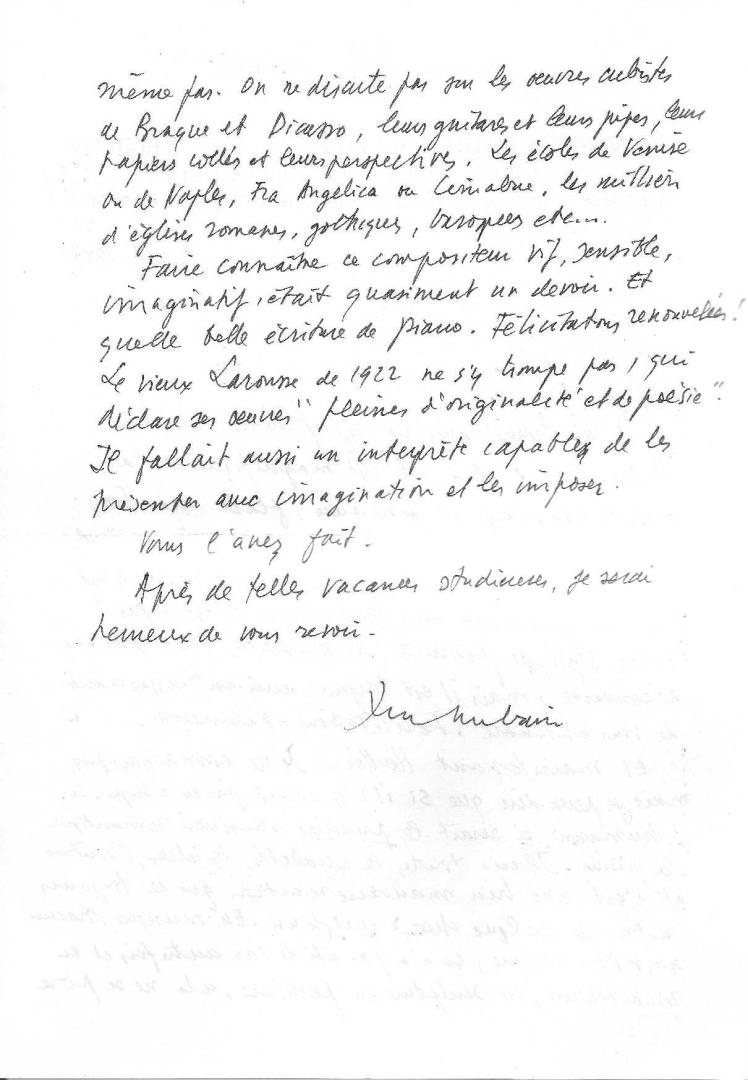 même pas. On ne discute pas sur les oeuvres cubistes
de Braque et Picasso, leurs guitares et leurs pipes, leurs
papiers collés et leurs perspectives. Les écoles de Venise
ou de Naples, Fra Angelica ou Cimabue, les milliers
d'églises romanes, gothiques, baroques etc....
Faire connaître ce compositeur vif, sensible,
imaginatif, était quasiment un devoir. Et
quelle belle écriture de piano. Félicitations renouvelées!
Le vieux Larousse de 1922 ne s'y trompe pas, qui
déclare ses oeuvres "pleines d'originalité et de poésie".
Il fallait aussi un interprète capable de les
présenter avec imagination et les imposer.
Vous l'avez fait.
Après de telles vacances studieuses, je serai
heureux de vous revoir.